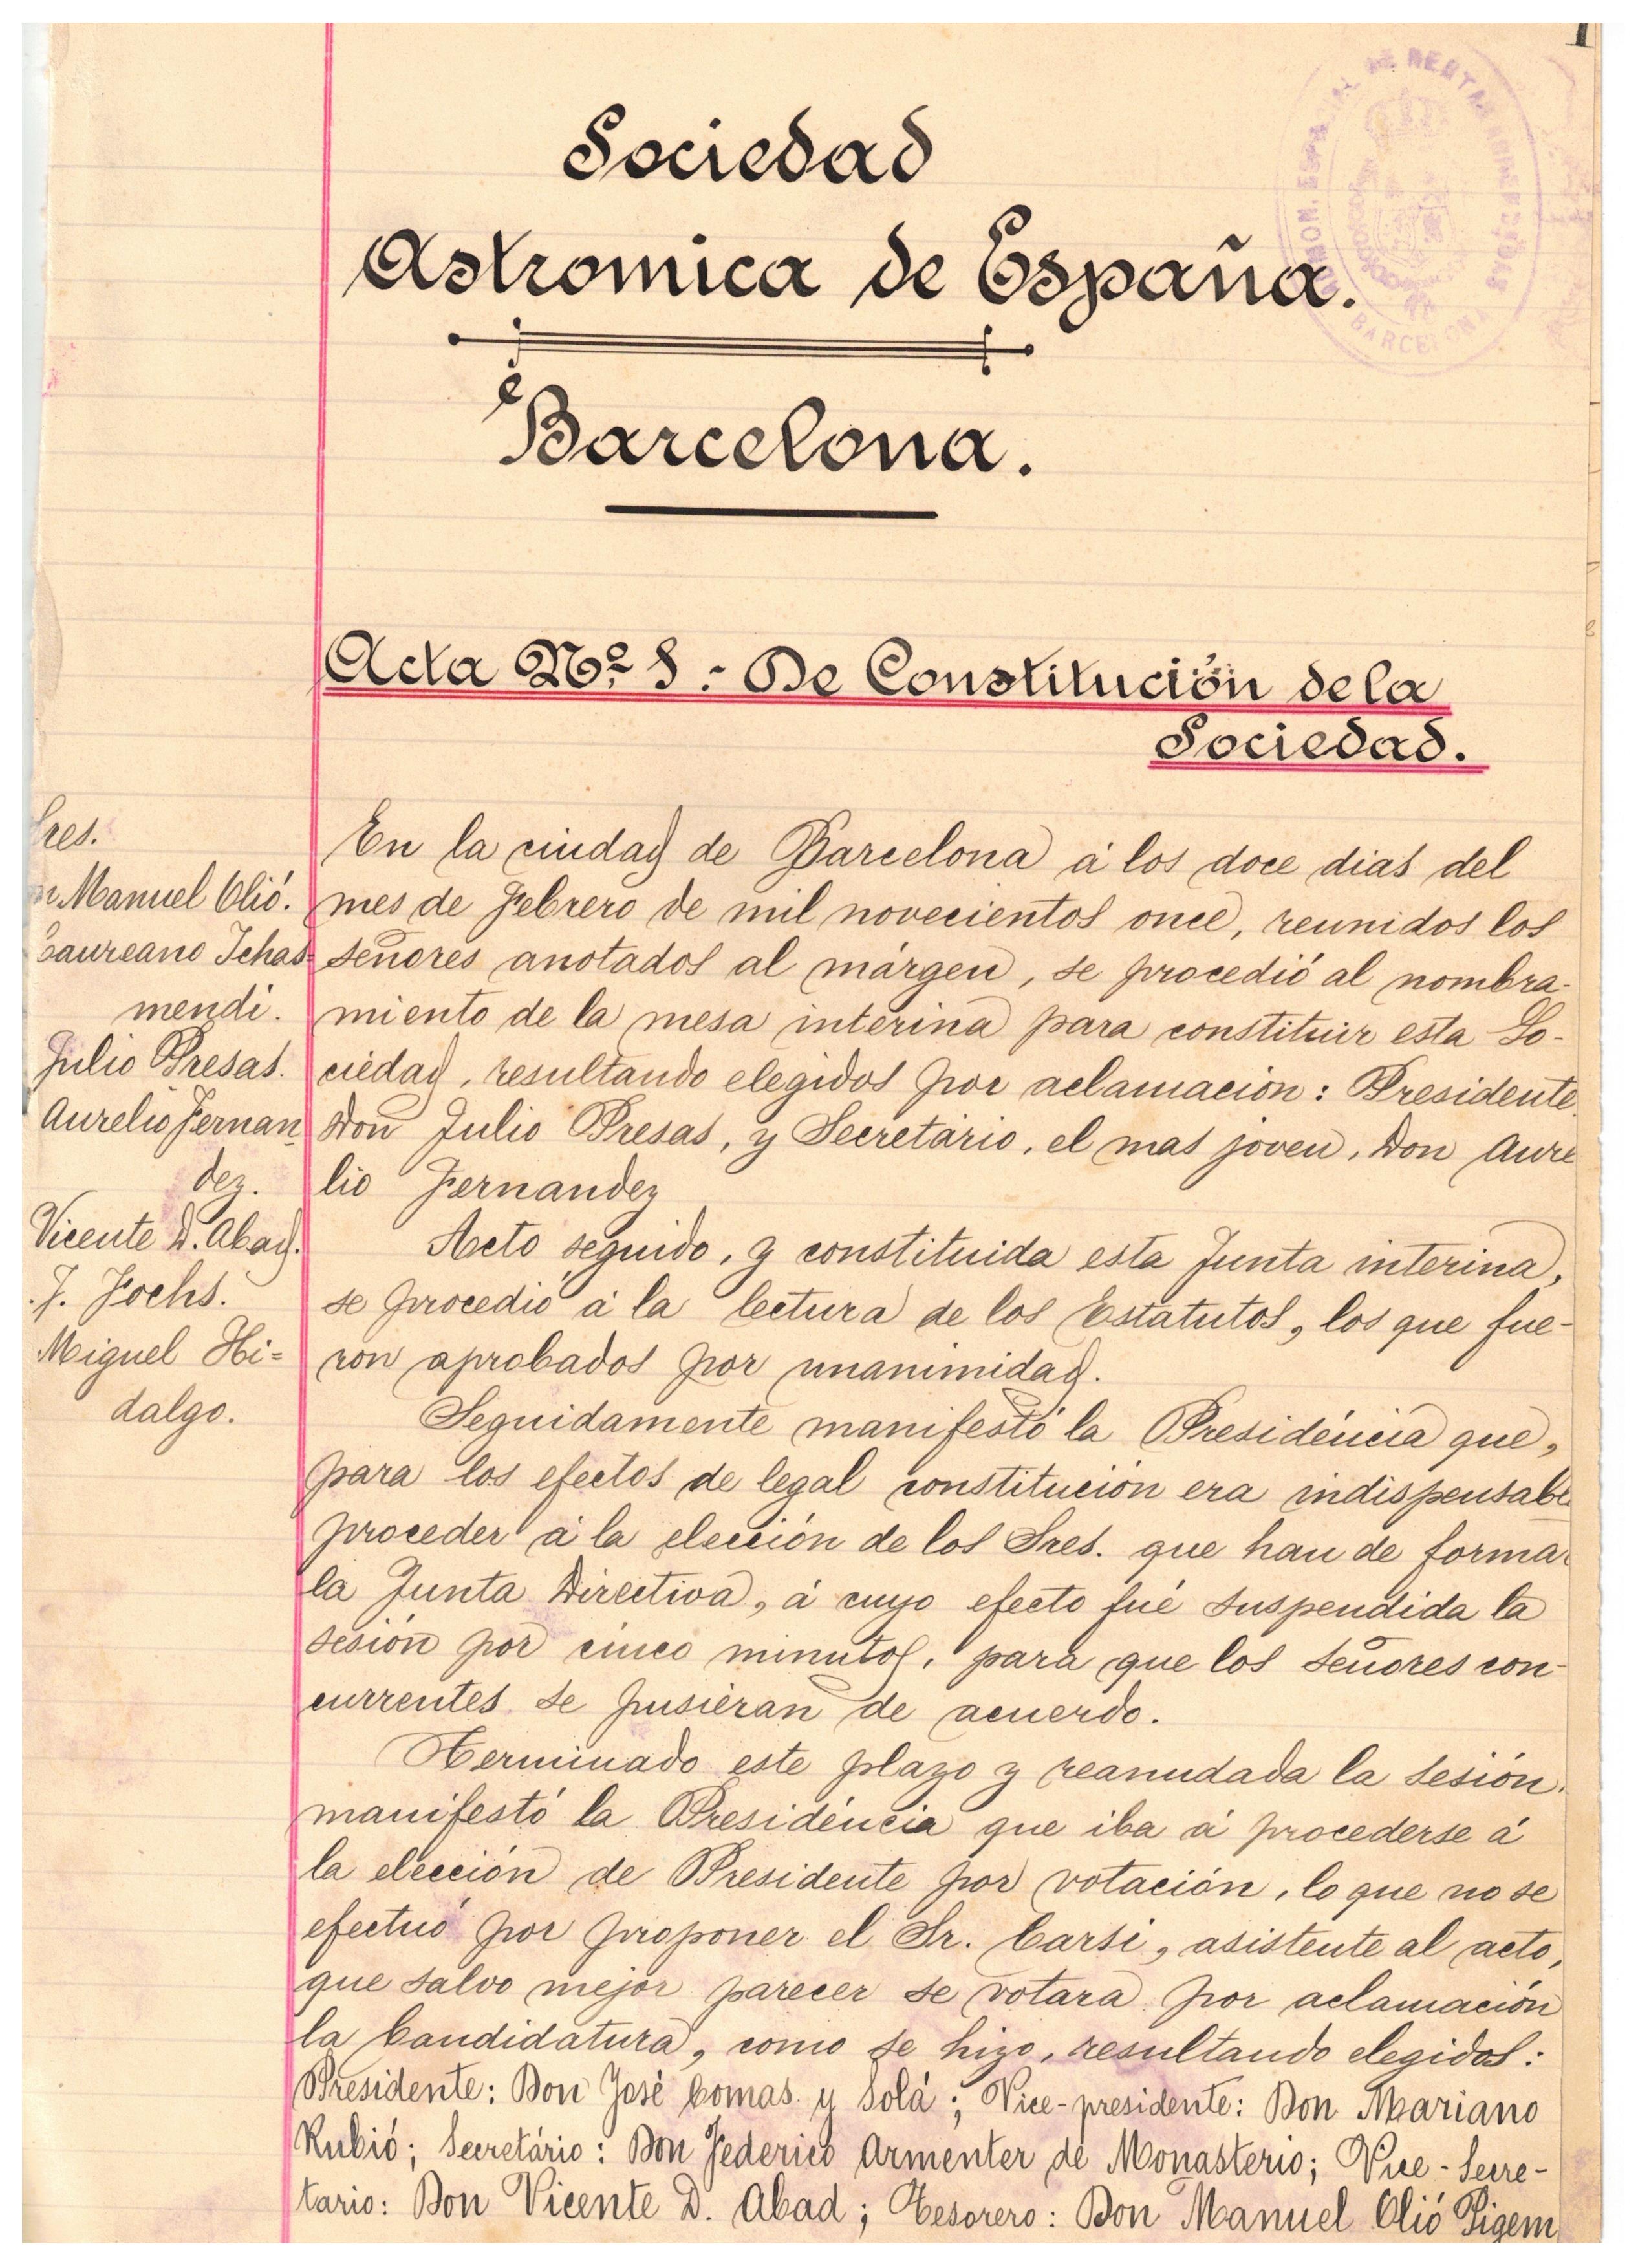 1
Sociedad
Astromica de España.
Barcelona.
Acta Nº 1 : De Constitución de la
Sociedad.
Sres.
n Manuel Olió.
Laureano Ichas=
mendi.
Julio Presas.
Aurelio Fernan
dez.
Vicente D. Abad.
J. Fochs.
Miguel Hi=
dalgo.
En la ciudad de Barcelona á los doce dias del
mes de Febrero de mil novecientos once, reunidos los
señores anotados al márgen, se procedió al nombra-
miento de la mesa interina para constituir esta So-
ciedad, resultando elegidos por aclamacion: Presidente
Don Julio Presas, y Secretário, el mas joven, Don Aure
lio Fernandez
Acto seguido, y constituida esta Junta interina,
se procedió á la lectura de los Estatutos, los que fue-
ron aprobados por unanimidad.
Seguidamente manifestó la Presidéncia que,
para los efectos de legal constitución era indispensabl
proceder á la elección de los Sres. que han de forma
la Junta Directiva, á cuyo efecto fué suspendida la
sesión por cinco minutos, para que los señores con-
currentes se pusieran de acuerdo.
Terminado este plazo y reanudada la sesión.
manifestó la Presidéncia que iba á procederse á
la elección de Presidente por votación, lo que no se
efectuó por proponer el Sr. Carsi, asistente al acto,
que salvo mejor parecer se votara por aclamación
la Candidatura, como se hizo, resultando elegidos:
Presidente: Don José Comas y Solá; Vice-presidente: Don Mariano
Rubió; Secretário: Don Federico Armenter de Monasterio; Vice-Secre-
tario: Don Vicente D. Abad; Tesorero: Don Manuel Olió Pigem
BARCELONA